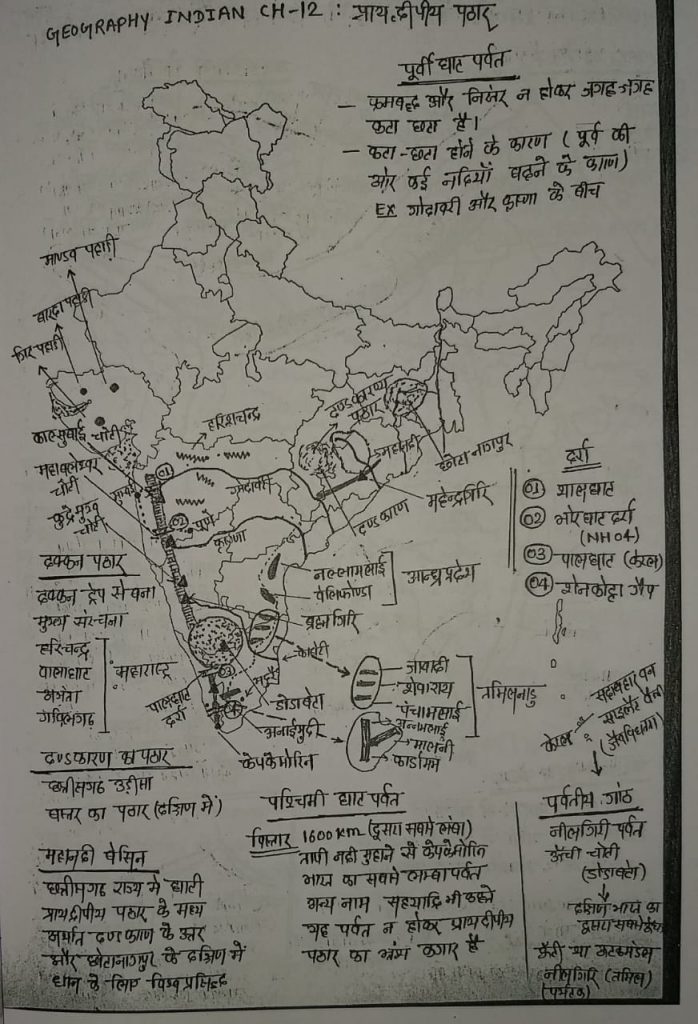 GEOGRAPHY INDIAN CH-12 : प्रायद्वीपीय पठार
पूर्वी घाट पर्वत
– क्रमबद्ध और निरंतर न होकर जगह-जगह
कटा छटा है।
– कटा-छटा होने के कारण ( पूर्व की
ओर कई नदियाँ बहने के कारण)
EX गोदावरी और कृष्णा के बीच
माण्डव पहाड़ी
बारदा पहाड़ी
गिर पहाड़ी
कालसुबाई चोटी
महाबलेश्वर
चोटी
कुद्रेमुख
चोटी
हरिशचन्द्र
दण्डकारण्य
पठार
महानदी
छोटा नागपुर
महेन्द्रगिरि
दण्डकारण
गोदावरी
01
मुम्बई
02 पुणे
कृष्णा
दर्रा
01 थालघाट
02 भोरघाट दर्रा
(NH 04)
03 पालघाट (केरल)
04 शेनकोट्टा गैप
नल्लामलाई
वेलिकोण्डा
आन्ध्र प्रदेश
ब्रह्मगिरि
कावेरी
03
04
मदुरै
पालघाट
दर्रा
डोडाबेटा
अनाईमुदी
केपकेमोरिन
जावादी
शेवाराय
पंचामलाई
तमिलनाडु
अन्नामलाई
पालनी
कार्डामम
दक्कन पठार
दक्कन ट्रेप से बना
मुख्य संरचना
हरिचन्द्र
बालाघाट
अजंता
गविलगढ
महाराष्ट्र
दण्डकारण का पठार
छत्तीसगढ उड़ीसा
बस्तर का पठार (दक्षिण में)
महानदी बेसिन
छत्तीसगढ राज्य मे घाटी
प्रायद्वीपीय पठार के मध्य
अर्थात दण्डकारण के उत्तर
और छोटानागपुर के दक्षिण में
धान के लिए विश्व प्रसिद्ध
पश्चिमी घाट पर्वत
विस्तार 1600 KM (दूसरा सबसे लंबा)
तापी नदी मुहाने से केपकेमोरिन
भारत का सबसे लम्बा पर्वत
अन्य नाम सहयाद्रि भी कहते
यह पर्वत न होकर प्रायद्वीपीय
पठार का भ्रंश कगार है
केरल
सदाबहार वन
साइलेंट वैली
(जैवविविधता)
पर्वतीय गांठ
नीलगिरी पर्वत
ऊँची चोटी
(डोडाबेटा)
दक्षिण भारत का
दूसरा सबसे ऊँचा
ऊँटी या उटकमंडल
नीलगिरि (तमिल)
(पर्यटक)